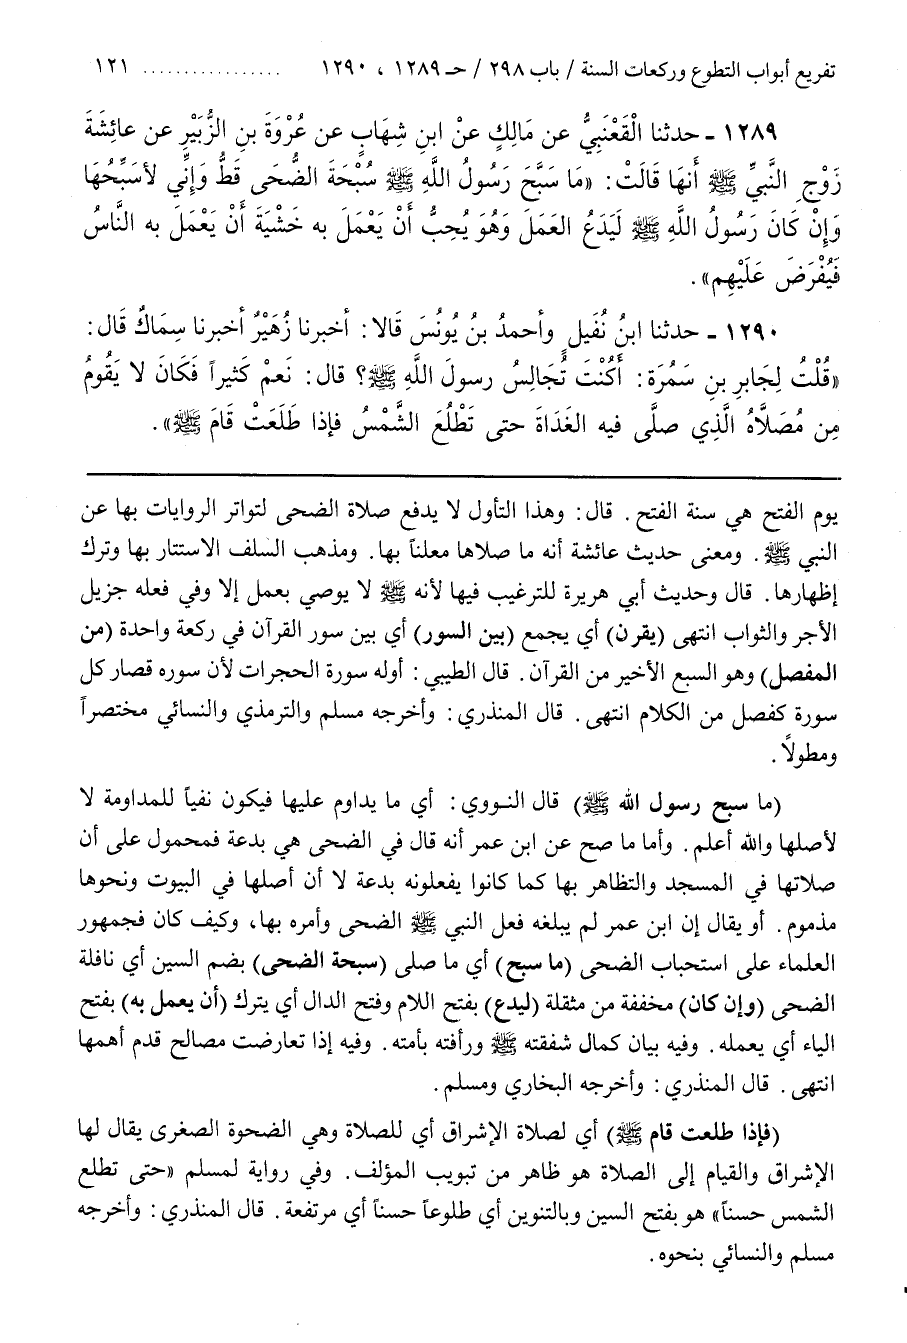 تفريع أبواب التطوع وركعات السنة / باب ٢٩٨ / حـ ١٢٨٩ ، ١٢٩٠ ................. ١٢١
١٢٨٩ ـ حدثنا الْقَعْنَبِيُّ عن مَالِكٍ عنْ ابنِ شِهَابٍ عن عُرْوَةَ بنِ الزُّبَيْرِ عن عائِشَةَ
زَوْجِ النَّبِيِّ ﷺ أَنهَا قَالَتْ: «مَا سَبَّحَ رَسُولُ اللَّهِ ﷺ سُبْحَةَ الضُّحَى قَطُّ وَإِنِّي لأسَبِّحُهَا
وَإِنْ كَانَ رَسُولُ اللَّهِ ﷺ لَيَدَعُ العَمَلَ وَهُوَ يُحِبُّ أَنْ يَعْمَلَ به خَشْيَةَ أَنْ يَعْمَلَ به النَّاسُ
فَيُفْرَضَ عَلَيْهِم».
١٢٩٠ ـ حدثنا ابنُ نُفَيلٍ وأحمدُ بنُ يُونُسَ قَالا: أخبرنا زُهَيْرٌ أخبرنا سِمَاكٌ قَال:
«قُلْتُ لِجَابِرِ بنِ سَمُرَة: أَكُنْتَ تُجَالِسُ رسولَ اللَّهِ ﷺ؟ قال: نَعمْ كَثيراً فَكَانَ لا يَقُومُ
مِن مُصَلَّاهُ الَّذِي صلَّى فيه الغَدَاةَ حتى تَطْلُعَ الشَّمْسُ فإذا طَلَعَتْ قامَ ﷺ».
يوم الفتح هي سنة الفتح. قال: وهذا التأول لا يدفع صلاة الضحى لتواتر الروايات بها عن
النبي ﷺ. ومعنى حديث عائشة أنه ما صلاها معلناً بها. ومذهب السلف الاستتار بها وترك
إظهارها. قال وحديث أبي هريرة للترغيب فيها لأنه ﷺ لا يوصي بعمل إلا وفي فعله جزيل
الأجر والثواب انتهى (يقرن) أي يجمع (بين السور) أي بين سور القرآن في ركعة واحدة (من
المفصل) وهو السبع الأخير من القرآن. قال الطيبي: أوله سورة الحجرات لأن سوره قصار كل
سورة كفصل من الكلام انتهى. قال المنذري: وأخرجه مسلم والترمذي والنسائي مختصراً
ومطولاً.
(ما سبح رسول الله ﷺ) قال النووي: أي ما يداوم عليها فيكون نفياً للمداومة لا
لأصلها والله أعلم. وأما ما صح عن ابن عمر أنه قال في الضحى هي بدعة فمحمول على أن
صلاتها في المسجد والتظاهر بها كما كانوا يفعلونه بدعة لا أن أصلها في البيوت ونحوها
مذموم. أو يقال إن ابن عمر لم يبلغه فعل النبي ﷺ الضحى وأمره بها، وكيف كان فجمهور
العلماء على استحباب الضحى (ما سبح) أي ما صلى (سبحة الضحى) بضم السين أي نافلة
الضحى (وإن كان) مخففة من مثقلة (ليدع) بفتح اللام وفتح الدال أي يترك (أن يعمل به) بفتح
الياء أي يعمله. وفيه بيان كمال شفقته ﷺ ورأفته بأمته. وفيه إذا تعارضت مصالح قدم أهمها
انتهى. قال المنذري: وأخرجه البخاري ومسلم.
(فإذا طلعت قام ﷺ) أي لصلاة الإشراق أي للصلاة وهي الضحوة الصغرى يقال لها
الإشراق والقيام إلى الصلاة هو ظاهر من تبويب المؤلف. وفي رواية لمسلم «حتى تطلع
الشمس حسناً» هو بفتح السين وبالتنوين أي طلوعاً حسناً أي مرتفعة. قال المنذري: وأخرجه
مسلم والنسائي بنحوه.